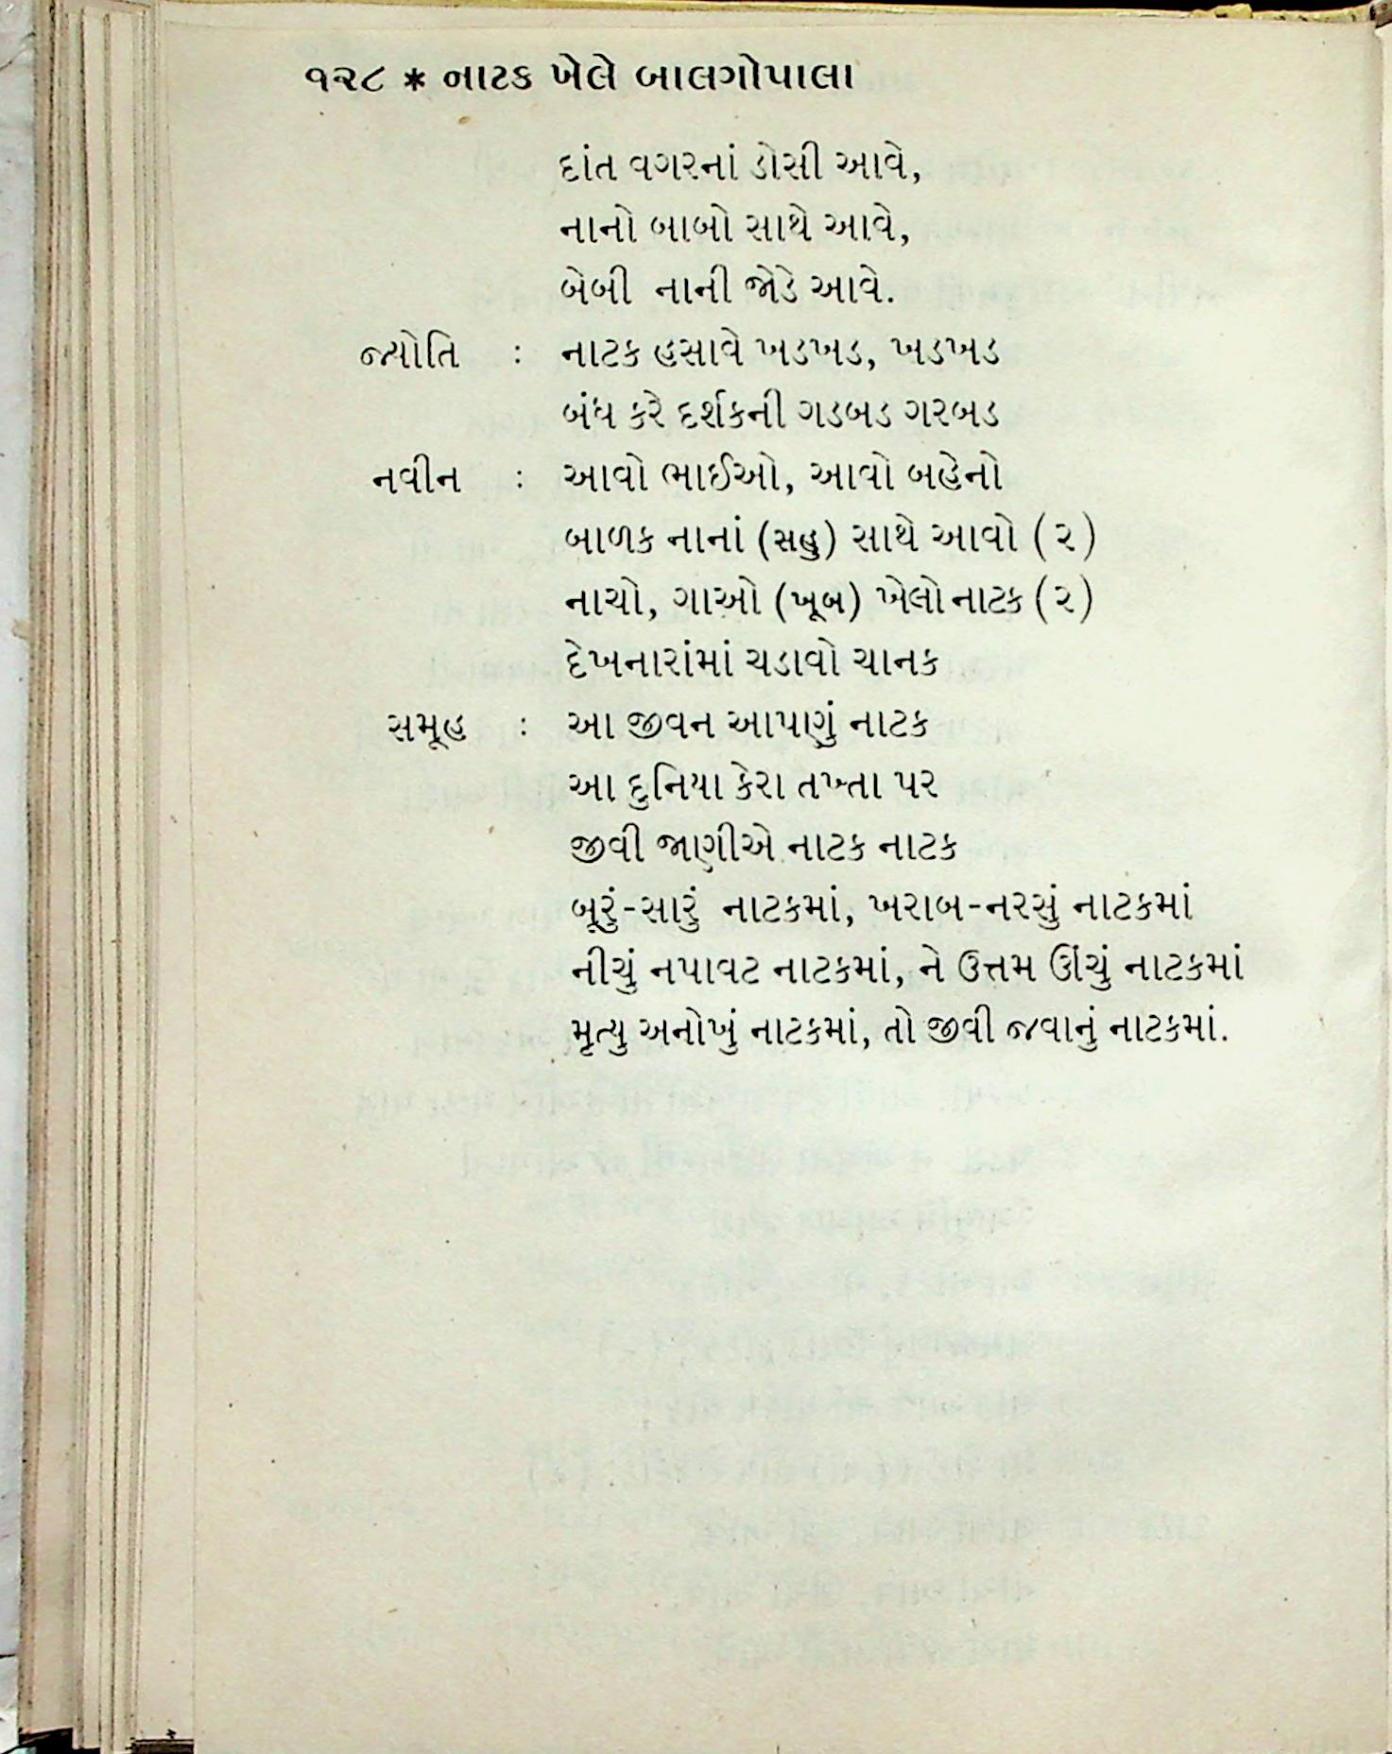 ૧૨૮ * નાટક ખેલે બાલગોપાલા
દાંત વગરનાં ડોસી આવે,
નાનો બાબો સાથે આવે,
બેબી નાની જોડે આવે.
જ્યોતિ : નાટક હસાવે ખડખડ, ખડખડ
બંધ કરે દર્શકની ગડબડ ગરબડ
નવીન : આવો ભાઈઓ, આવો બહેનો
બાળક નાનાં (સહુ) સાથે આવો (૨)
નાચો, ગાઓ (ખૂબ) ખેલો નાટક (૨)
દેખનારાંમાં ચડાવો ચાનક
સમૂહ : આ જીવન આપણું નાટક
આ દુનિયા કેરા તખ્તા પર
જીવી જાણીએ નાટક નાટક
બૂરું-સારું નાટકમાં, ખરાબ-નરસું નાટકમાં
નીચું નપાવટ નાટકમાં, ને ઉત્તમ ઊંચું નાટકમાં
મૃત્યુ અનોખું નાટકમાં, તો જીવી જવાનું નાટકમાં.